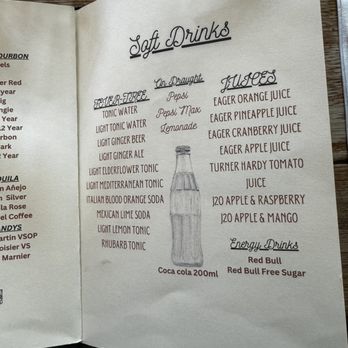 OURBON
els
er Red
year
ig
ngie
Year
2 Year
rbon
ark
Year
QUILA
n Añejo
n Silver
la Rose
el Coffee
NDYS
artin VSOP
oisier VS
Marnier
Soft Drinks
FEVER-TREE
TONIC WATER
LIGHT TONIC WATER
LIGHT GINGER BEER
LIGHT GINGER ALE
LIGHT ELDERFLOWER TONIC
LIGHT MEDITERRANEAN TONIC
ITALIAN BLOOD ORANGE SODA
MEXICAN LIME SODA
LIGHT LEMON TONIC
RHUBARB TONIC
On Draught
Pepsi
Pepsi Max
Lemonade
Coca cola 200ml
JUICES
EAGER ORANGE JUICE
EAGER PINEAPPLE JUICE
EAGER CRANBERRY JUICE
EAGER APPLE JUICE
TURNER HARDY TOMATO
JUICE
J2O APPLE & RASPBERRY
J2O APPLE & MANGO
Energy Drinks
Red Bull
Red Bull Free Sugar